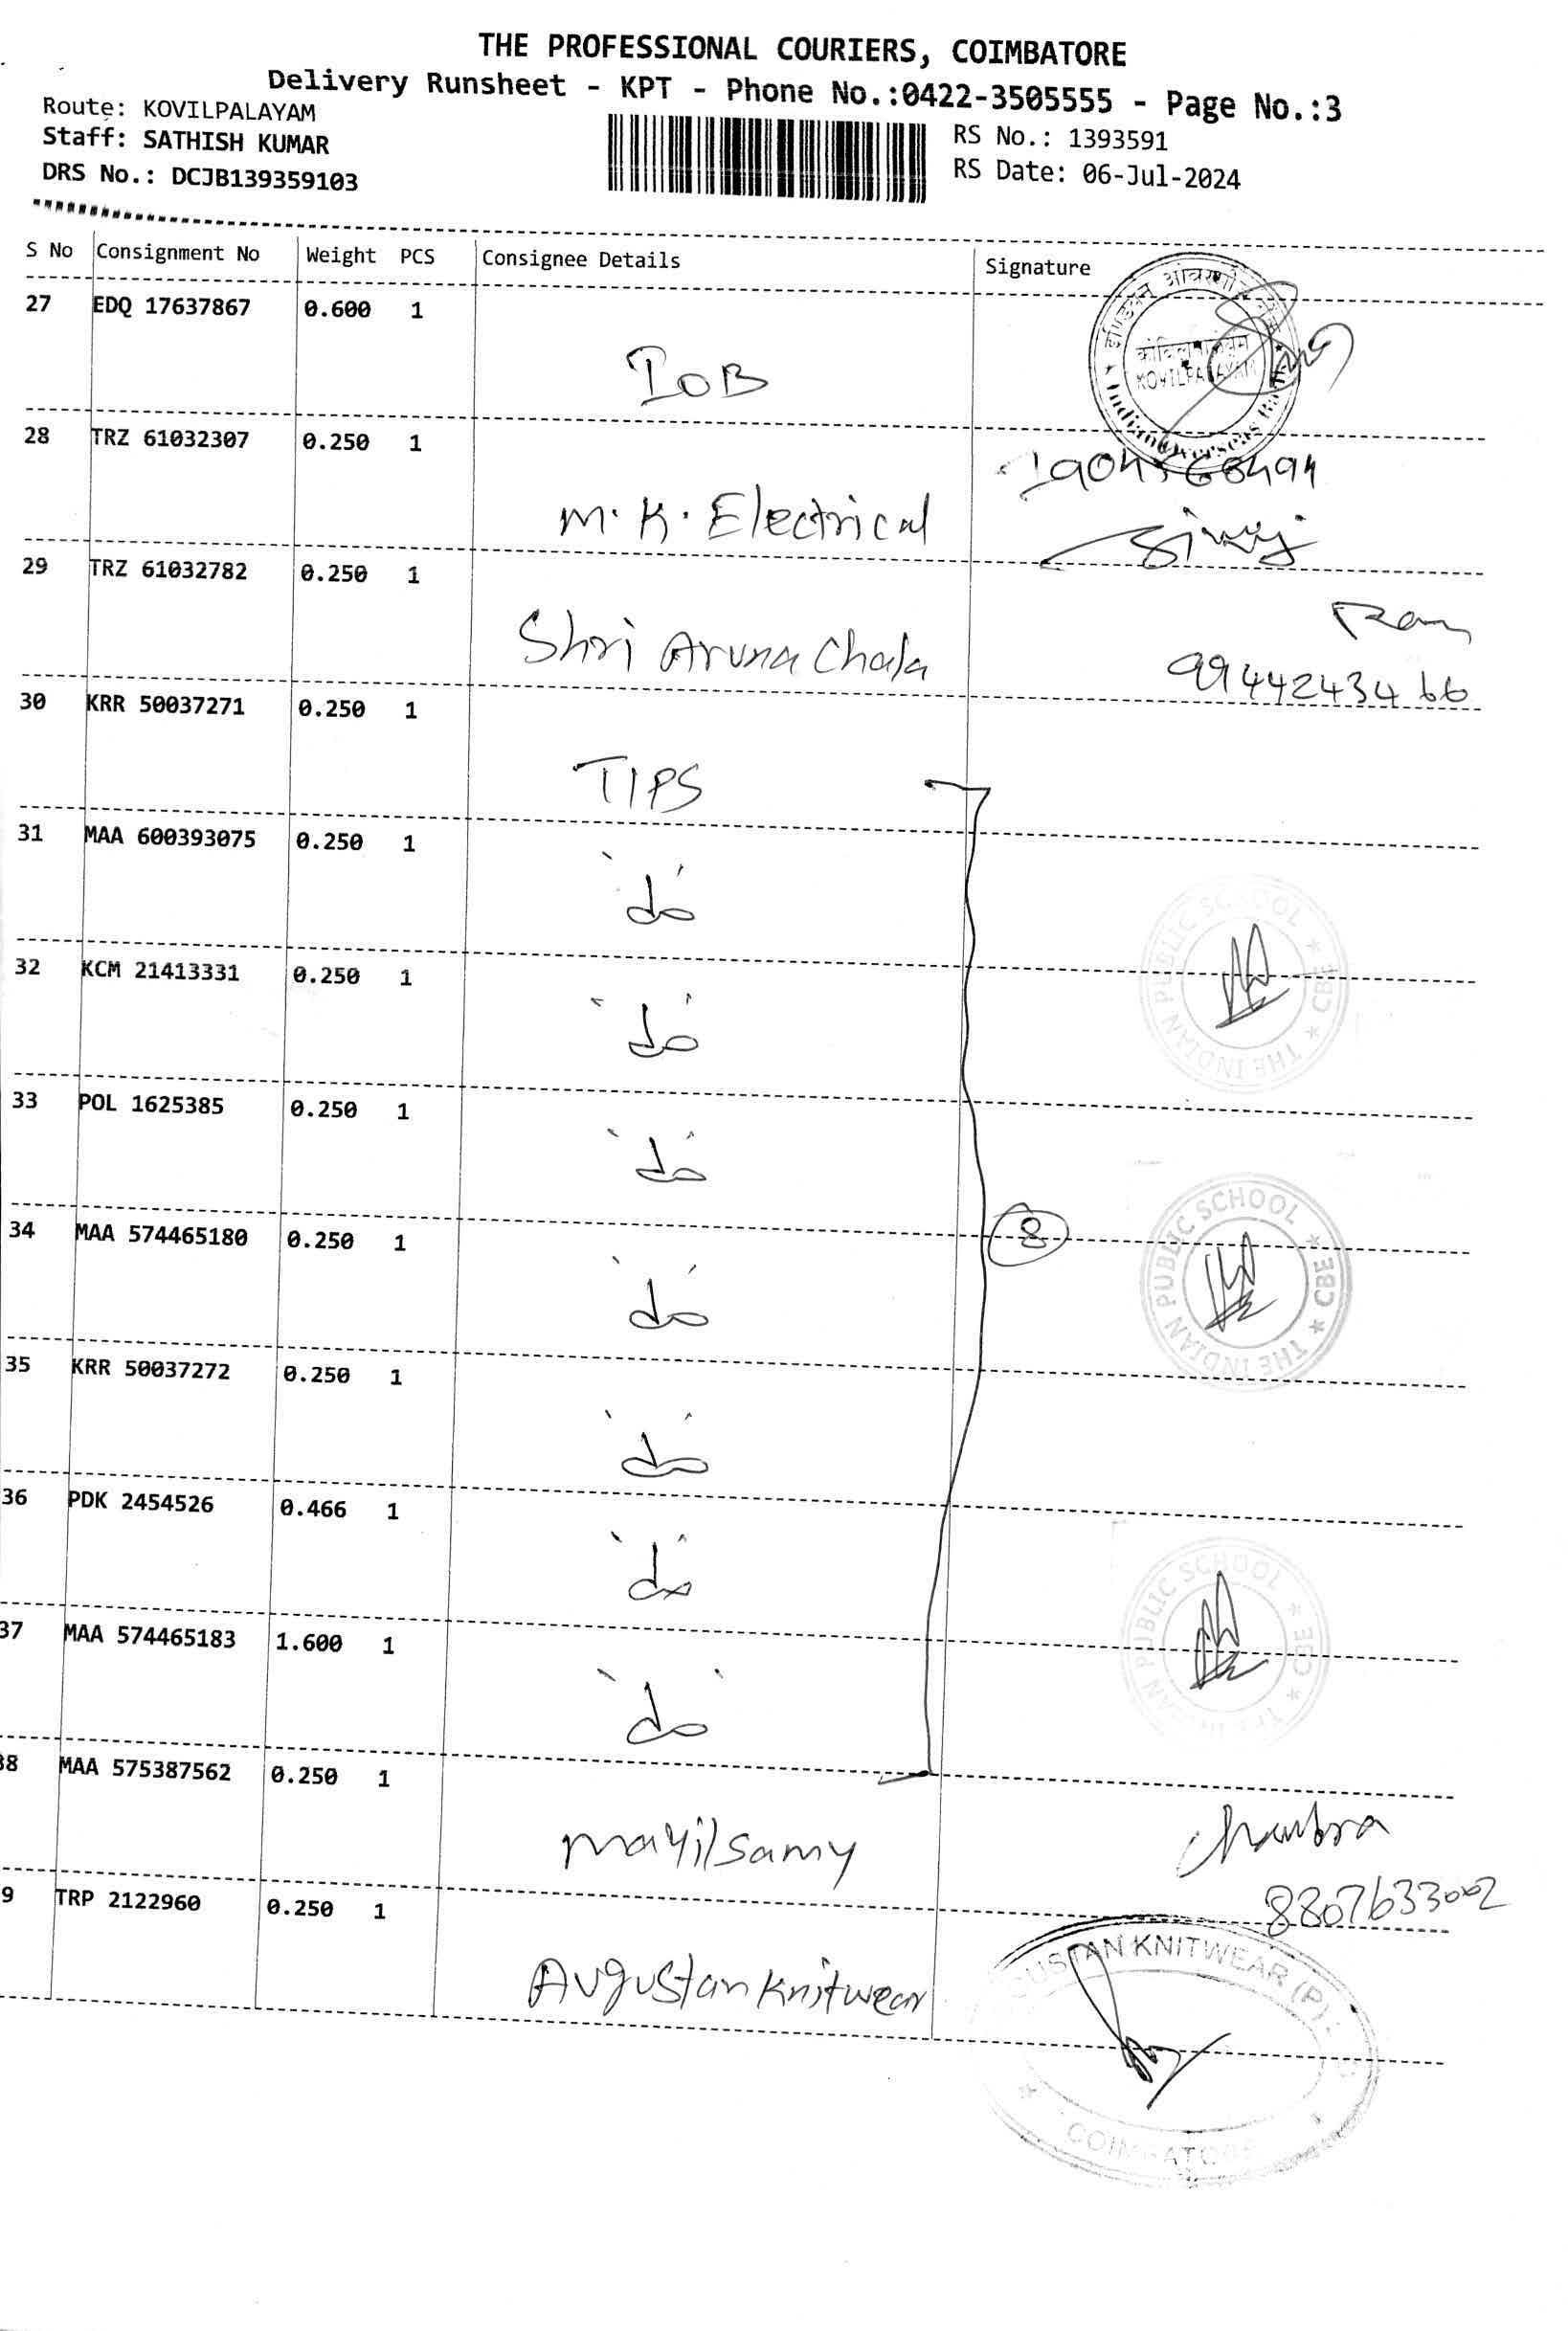 THE PROFESSIONAL COURIERS, COIMBATORE
Delivery Runsheet - KPT - Phone No.:0422-3505555 - Page No.:3
Route: KOVILPALAYAM
Staff: SATHISH KUMAR
DRS No.: DCJB139359103
RS No.: 1393591
RS Date: 06-Jul-2024
S No Consignment No Weight PCS Consignee Details Signature
27 EDQ 17637867 0.600 1
IOB
इण्डियन ओवरसीज
कोविलपालयम
KOVILPALAYAM
Indian Overseas Bank
28 TRZ 61032307 0.250 1
M.K. Electrical
29 TRZ 61032782 0.250 1
Shri Aruna Chala
Ram
9944243466
30 KRR 50037271 0.250 1
TIPS
31 MAA 600393075 0.250 1
do
32 KCM 21413331 0.250 1
do
THE INDIAN PUBLIC SCHOOL * CBE *
33 POL 1625385 0.250 1
do
34 MAA 574465180 0.250 1
8
do
THE INDIAN PUBLIC SCHOOL * CBE *
35 KRR 50037272 0.250 1
do
36 PDK 2454526 0.466 1
do
37 MAA 574465183 1.600 1
THE INDIAN PUBLIC SCHOOL * CBE *
do
38 MAA 575387562 0.250 1
Mayilsamy
Chandra
8807633002
9 TRP 2122960 0.250 1
Augustan Knitwear
GUSTAN KNITWEAR (P)
COIMBATORE